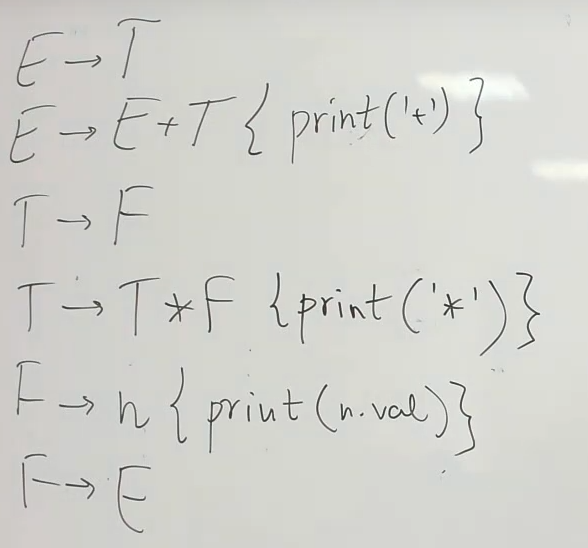 E → T
E → E + T { print('+') }
T → F
T → T * F { print('*') }
F → n { print(n.val) }
F → E